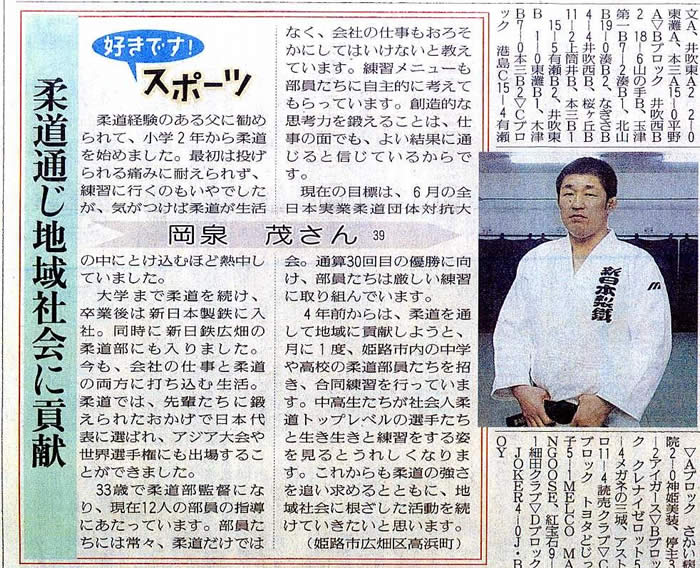 柔道通じ地域社会に貢献
好きです!
スポーツ
柔道経験のある父に勧め
られて、小学2年から柔道
を始めました。最初は投げ
られる痛みに耐えられず、
練習に行くのもいやでした
が、気がつけば柔道が生活
岡泉 茂さん 39
の中にとけ込むほど熱中し
ていました。
大学まで柔道を続け、
卒業後は新日本製鉄に入
社。同時に新日鉄広畑の
柔道部にも入りました。
今も、会社の仕事と柔道
の両方に打ち込む生活。
柔道では、先輩たちに鍛
えられたおかげで日本代
表に選ばれ、アジア大会や
世界選手権にも出場するこ
とができました。
33歳で柔道部監督にな
り、現在12人の部員の指導
にあたっています。部員た
ちには常々、柔道だけでは
なく、会社の仕事もおろそ
かにしてはいけないと教え
ています。練習メニューも
部員たちに自主的に考えて
もらっています。創造的な
思考力を鍛えることは、仕
事の面でも、よい結果に通
じると信じているからで
す。
現在の目標は、6月の全
日本実業柔道団体対抗大
会。通算30回目の優勝に向
け、部員たちは厳しい練習
に取り組んでいます。
4年前からは、柔道を通
して地域に貢献しようと、
月に1度、姫路市内の中学
や高校の柔道部員たちを招
き、合同練習を行っていま
す。中高生たちが社会人柔
道トップレベルの選手たち
と生き生きと練習をする姿
を見るとうれしくなりま
す。これからも柔道の強さ
を追い求めるとともに、地
域社会に根ざした活動を続
けていきたいと思います。
(姫路市広畑区高浜町)
文A、井吹東A2 2−0
東灘A、本三A15−0平野
A▽Bブロック 井吹西B
2 18−6山の手B、玉津
第一B7−2湊B1、北山
B19−0湊B2、なぎさB
4−4井吹西B、桜ヶ丘B
11−2上筒井B、本三B1
15−5有瀬B2、井吹東
B1−0東灘B1、木津
B7−0本三B2▽Cブロ
ック 港島C15−4有瀬
新日本製鐵
▽Aブロック さかい病
院2−0神姫美装、停主3
−2アイガース▽Bブロッ
ク クレナイゼロット5
−4メガネの三城、アスト
ロ11−4読売クラブ▽C
ブロック トヨタどじっ
子5−1MELCO MA
NGOOSE、紅宝石9−
1細田クラブ▽Dブロック
JOKER4−0J・B
OY